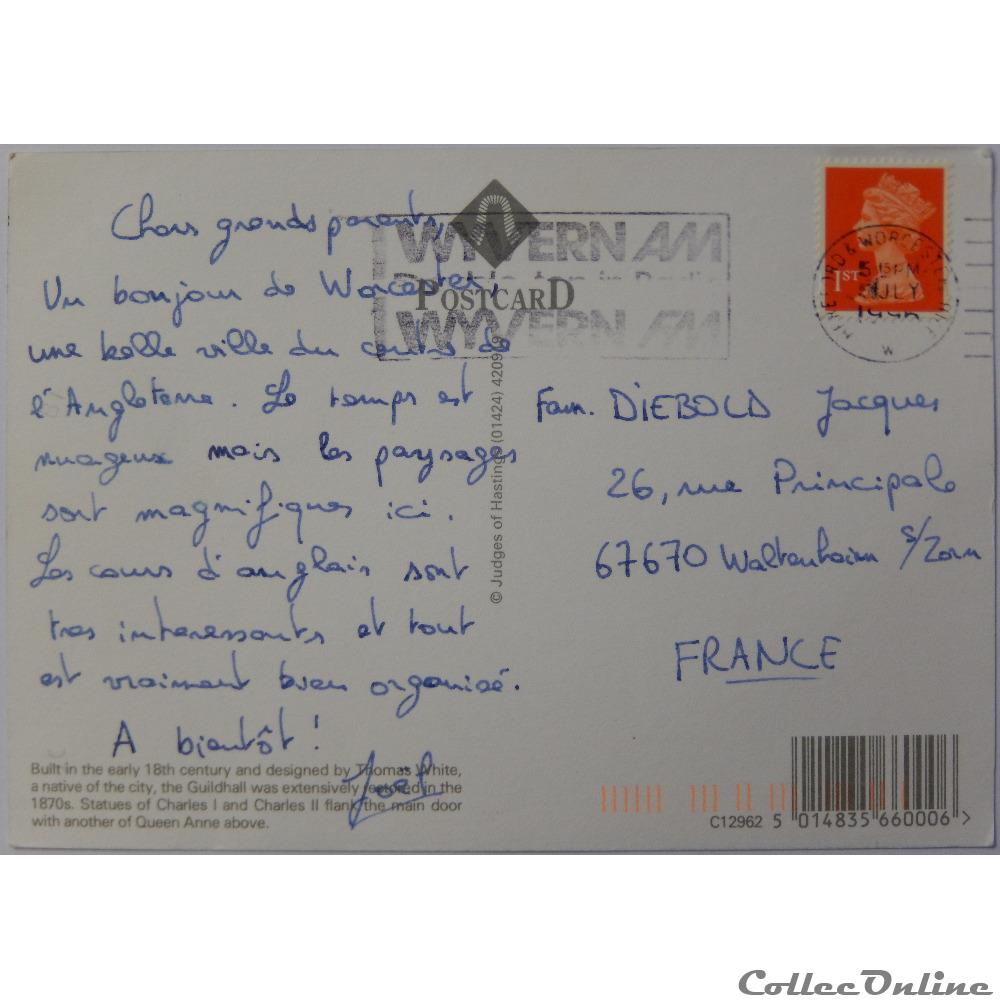 Chers grands parents,
Un bonjour de Worcester,
une belle ville du centre de
l'Angleterre. Le temps est
nuageux mais les paysages
sont magnifiques ici.
Les cours d'anglais sont
tres interessants et tout
est vraiment bien organisé.
A bientôt !
Joël
WYVERN AM
POSTCARD
WYVERN FM
© Judges of Hastings (01424) 420919
1ST
HEREFORD & WORCESTER
5 15PM
JULY
W
Fam. DIEBOLD Jacques
26, rue Principale
67670 Waltenheim s/Zorn
FRANCE
Built in the early 18th century and designed by Thomas White,
a native of the city, the Guildhall was extensively restored in the
1870s. Statues of Charles I and Charles II flank the main door
with another of Queen Anne above.
C12962 5 014835 660006 >
CollecOnline